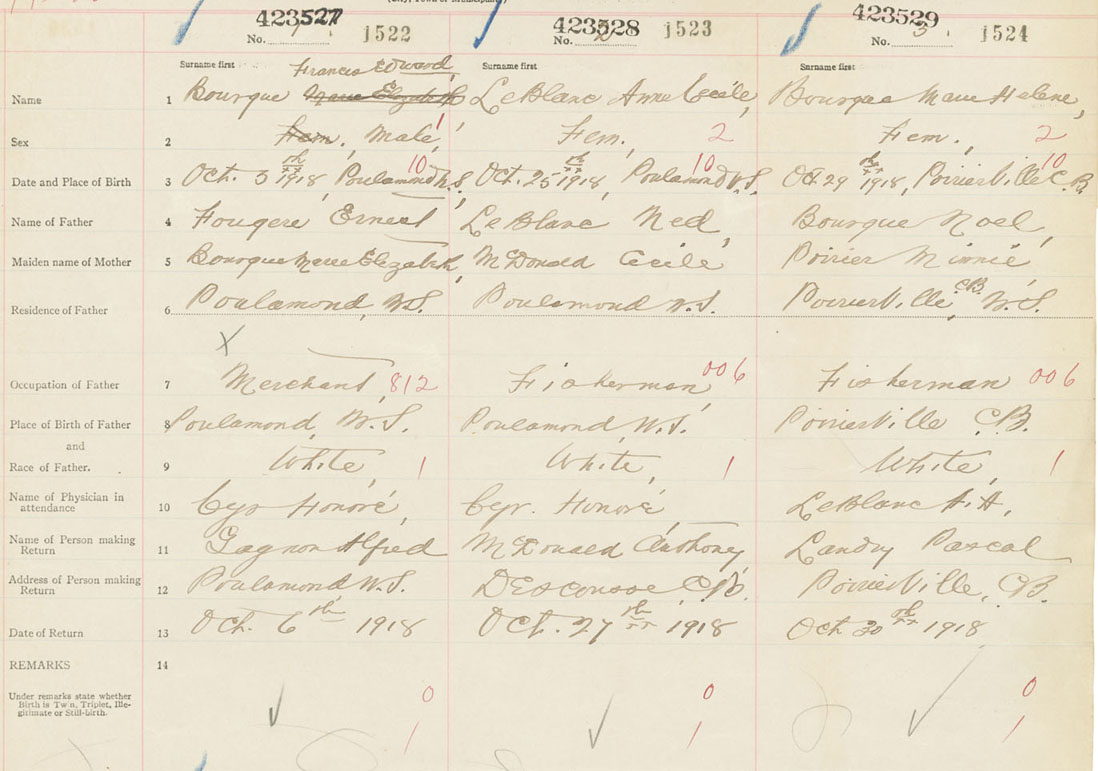 (City, Town or Municipality)
423527 423528 423529
No. 1 1522 No. 2 1523 No. 3 1524
Surname first Francis Edward Surname first Surname first
Name 1 Bourque Marie Elizabeth LeBlanc Anne Cécile, Bourque Marie Helene,
1
Sex 2 Fem. Male, Fem, 2 Fem., 2
10 10 10
Date and Place of Birth 3 Oct. 5th 1918, Poulamond N.S, Oct, 25th 1918, Poulamond N.S. Oct 29th 1918, PoirierVille C.B.
Name of Father 4 Fougere Ernest LeBlanc Ned, Bourque Noel,
Maiden name of Mother 5 Bourque Marie Elizabeth, McDonald Cecile Poirier Minnie
Residence of Father 6 Poulamond, N.S. Poulamond N.S. PoirierVille, CB. N.S.
X
Occupation of Father 7 Merchant, 812 Fisherman, 006 Fisherman 006
Place of Birth of Father 8 Poulamond, N.S. Poulamond, N.S. PoirierVille C.B.
and
Race of Father. 9 White, 1 White, 1 White, 1
Name of Physician in
attendance 10 Cyr Honoré, Cyr. Honoré LeBlanc A.A,
Name of Person making
Return 11 Gagnon Alfred McDonald Anthony, Landry Pascal
Address of Person making
Return 12 Poulamond, N.S. DEscousse, C.B. PoirierVille, C.B.
Date of Return 13 Oct. 6th 1918 Oct. 27th 1918 Oct 30th 1918,
REMARKS 14
Under remarks state whether
Birth is Twin, Triplet, Ille-
gitimate or Still-birth.
0 0 0
1 1 1